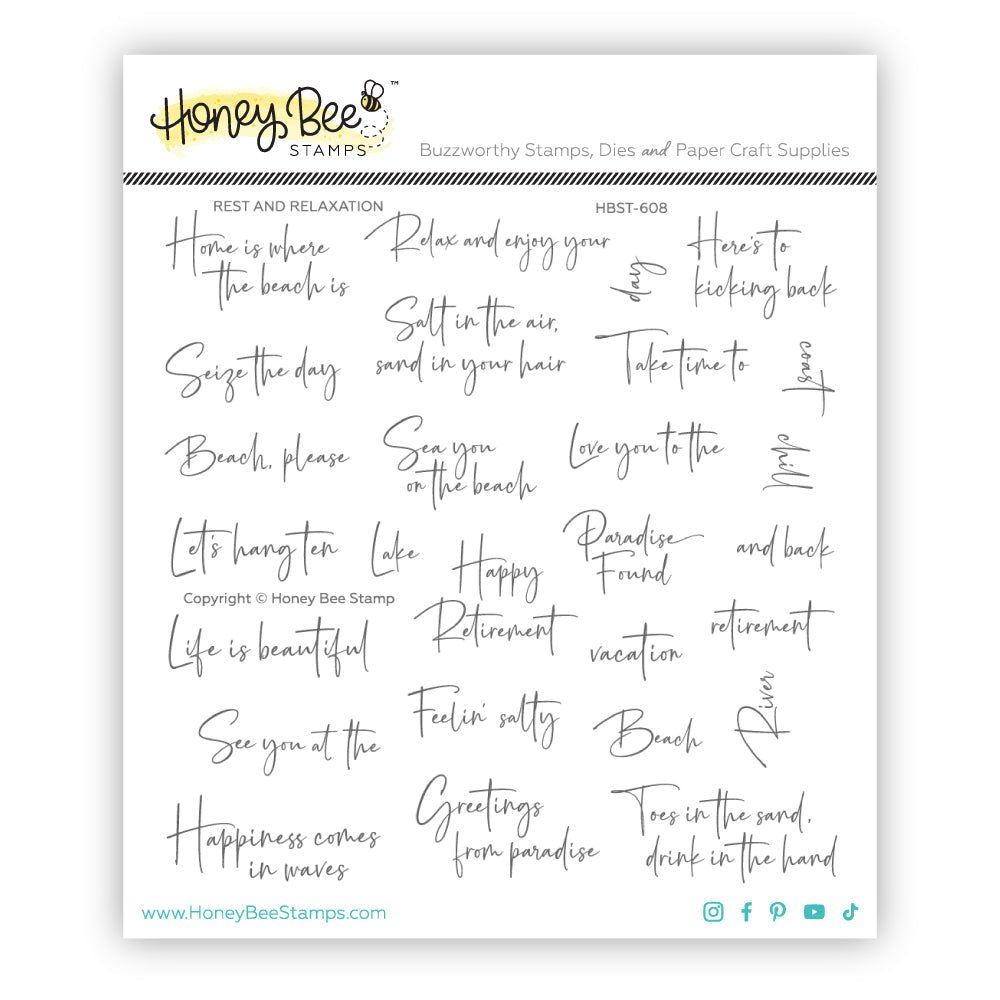 Honey Bee™
STAMPS
Buzzworthy Stamps, Dies and Paper Craft Supplies
REST AND RELAXATION
HBST-608
Home is where
the beach is
Relax and enjoy your
day
Here's to
kicking back
Salt in the air,
sand in your hair
Seize the day
Take time to
coast
Beach, please
Sea you
on the beach
Love you to the
chill
Let's hang ten
Lake
Happy
Paradise
Found
and back
Copyright © Honey Bee Stamp
Life is beautiful
Retirement
vacation
retirement
See you at the
Feelin' salty
Beach
River
Happiness comes
in waves
Greetings
from paradise
Toes in the sand,
drink in the hand
www.HoneyBeeStamps.com